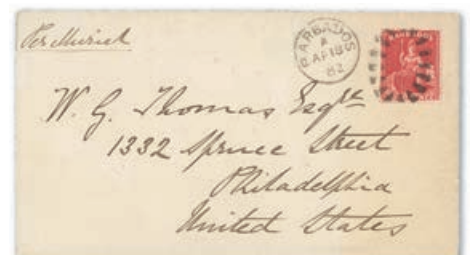 Per Muriel
BARBADOS
A
AP 18
82
BARBADOS
W. G. Thomas Esqre
1332 Spruce Street
Philadelphia
United States